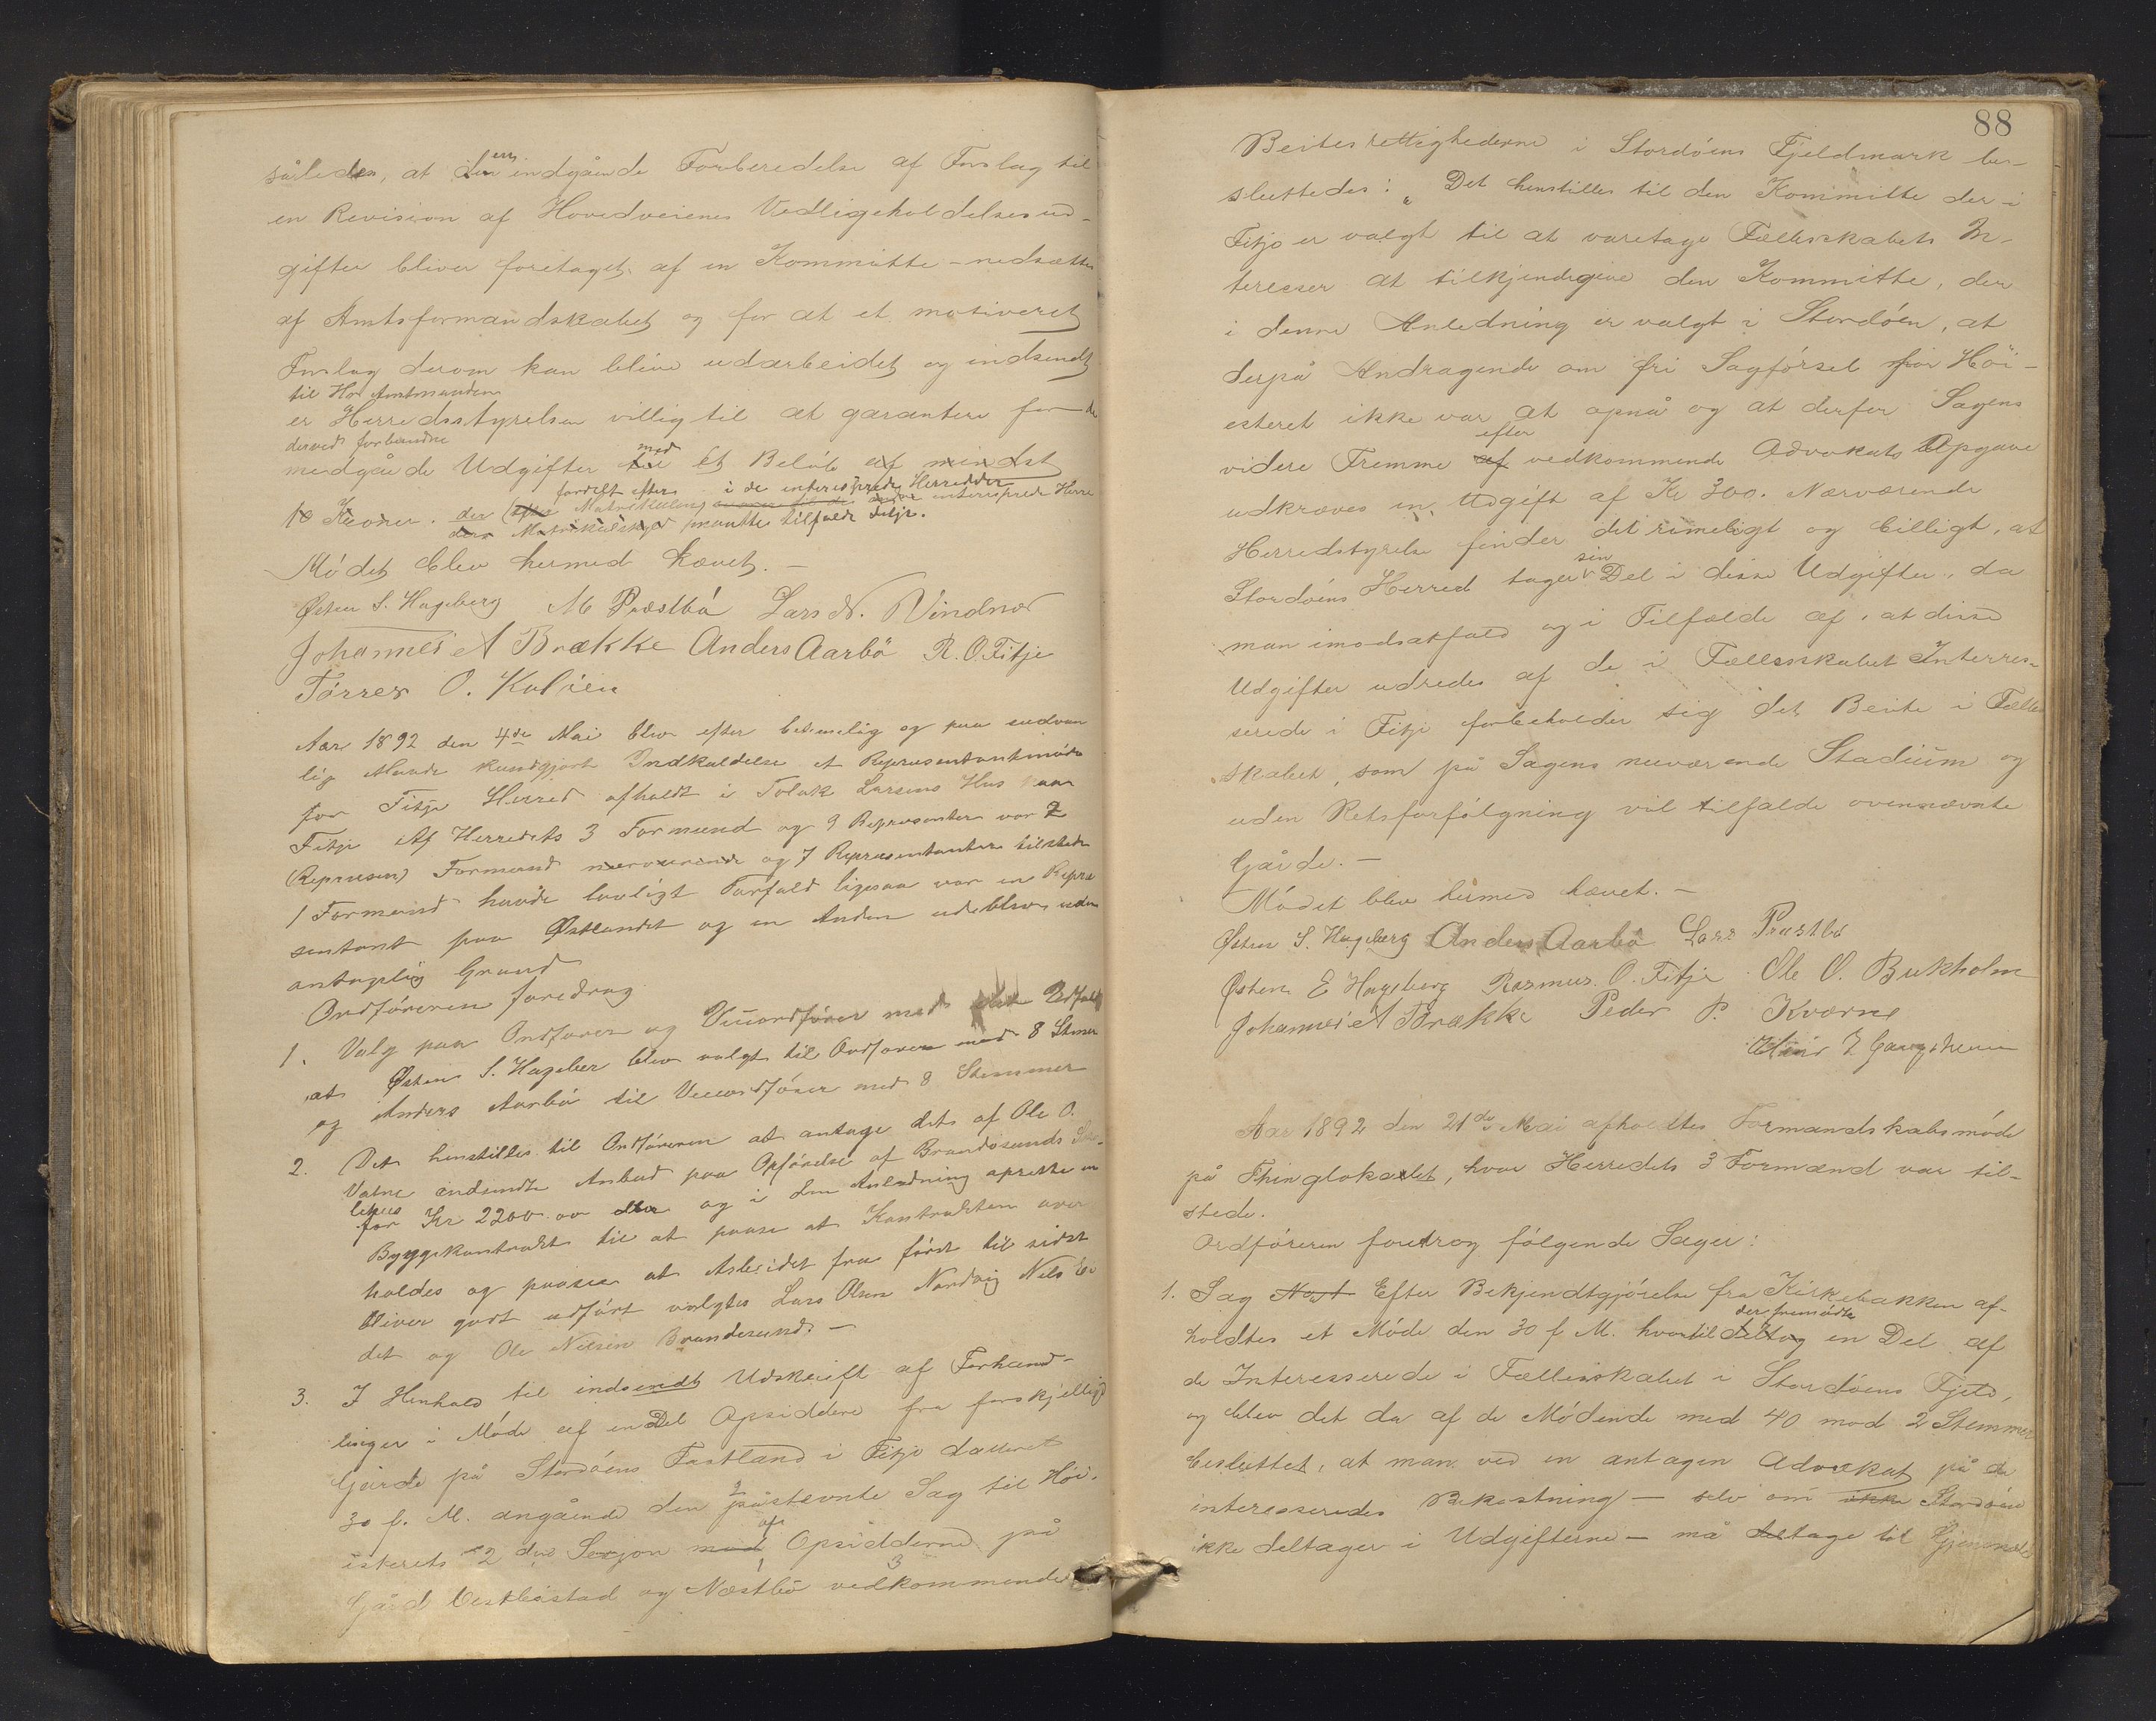 således, at den indgående Forberedelse af Forslag til
en Revision af Hovedveienes Vedligeholdelsesud-
gifter bliver foretaget af en Kommitte - nedsættes
af Amtsformandskabet og for at et motiveret
Forslag derom kan blive udarbeidet og indsendt
til Hr Amtmanden
er Herredsstyrelsen villig til at garantere for de
derved forbundne
medgåede Udgifter med et Beløb af mindst
fordelt efter i de interesserede Herredder
10 Kroner. der (efter Matrikulen) interesserede Herre
ders Matrikulskyld måtte tilfalde Fitje.
Mödet blev hermed hævet. -
Østen S. Hageberg M Præstbö Lars N. Vindnæs
Johannes A Brække Anders Aarbö R. O. Fitje
Törres O. Koløen
Aar 1892 den 4de Mai blev efter betimelig og paa sedvan
lig Maade kundgjort Indkaldelse et Repræsentantmöde
for Fitje Herred afholdt i Tolak Larsens Hus paa
Fitje Af Herredets 3 Formænd og 9 Repræsenter var 2
(Repræsen) Formænd nærværende og 7 Repræsentanter tilstede
1 Formand havde lovligt Forfald ligesaa var en Repræ
sentant paa Østlandet og en Anden udeblev uden
antagelig Grund
Ordföreren foredrog
1. Valg paa Ordförer og Viceordförer med Udfald
at Østen S. Hageber blev valgt til Ordförer med 8 Stmer
og Anders Aarbö til Viceordförer med 8 Stemmer
2. Det henstilles til Ordföreren at antage det af Ole O.
Vatne indsendte Anbud paa Opförelse af Brandösunds
for Kr 2200.00 og i den Anledning oprette en
Byggekontrakt til at paase at Kontrakten over
holdes og paases at Arbeidet fra först til sidst
bliver godt udfört valgtes Lars Olsen Nordvig Nels Ei
det og Ole Nilsen Brandesund. -
3. I Henhold til indsendt Udskrift af Forhand-
linger i Möde af endel Opsiddere fra forskjellige
Gårde på Stordöens Fastland i Fitje dateret
30 f. M. angående den påstevnte Sag til Höi-
esterets 2den Sesjon af Opsidderne på
Gård Vestböstad og Næstbö vedkommende
88
Beitesrettighederne i Stordöens Fjeldmark be-
sluttedes: „Det henstilles til den Kommitte der i
Fitje er valgt til at varetage Fællesskabets In-
teresser at tilkjendegive den Kommitte, der
i denne Anledning er valgt i Stordöen, at
derpå Andragende om fri Sagförsel for Höi-
esteret ikke var at opnå og at derfor Sagens
videre Fremme efter vedkommende Advokats Opgave
udkræves en Udgift af Kr 300. Nærværende
Herredstyrelse finder det rimeligt og billigt, at
Stordöens Herred tager sin Del i disse Udgifter, da
man imodsatfald og i Tilfælde af, at disse
Udgifter udredes af de i Fællesskabet Interres-
serede i Fitje forbeholder sig det Beite i Fælles
skabet, som på Sagens nuværende Stadium og
uden Retsforfölgning vil tilfalde ovennævnte
Gårde. -
Mödet blev hermed hævet. -
Østen S. Hageberg Anders Aarbö Lars Præstbö
Østen E Hageberg Rasmus. O. Fitje Ole O. Bukholm
Johannes A Brække Peder P. Kværne
Aar 1892 den 21de Mai afholdtes Formandskabsmöde
på Thinglokalet, hvor Herredets 3 Formænd var til-
stede.
Ordföreren foredrog fölgende Sager:
1. Sag No 1 Efter Bekjendtgjörelse fra Kirkebakken af-
holdtes et Möde den 30 f. M. hvortil der fremödte en Del af
de Interesserede i Fællesskabet i Stordöens Fjeld,
og blev det da af de Mödende med 40 mod 2 Stemmer
besluttet, at man ved en antagen Advokat på de
interesseredes Bekostning - selv om ikke Stordöen
ikke deltager i Udgifterne - må tage til Gjenmæle